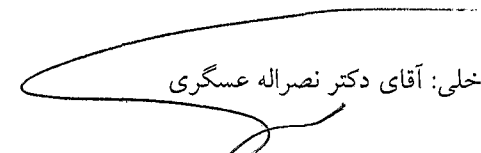 خلی: آقای دکتر نصراله عسگری